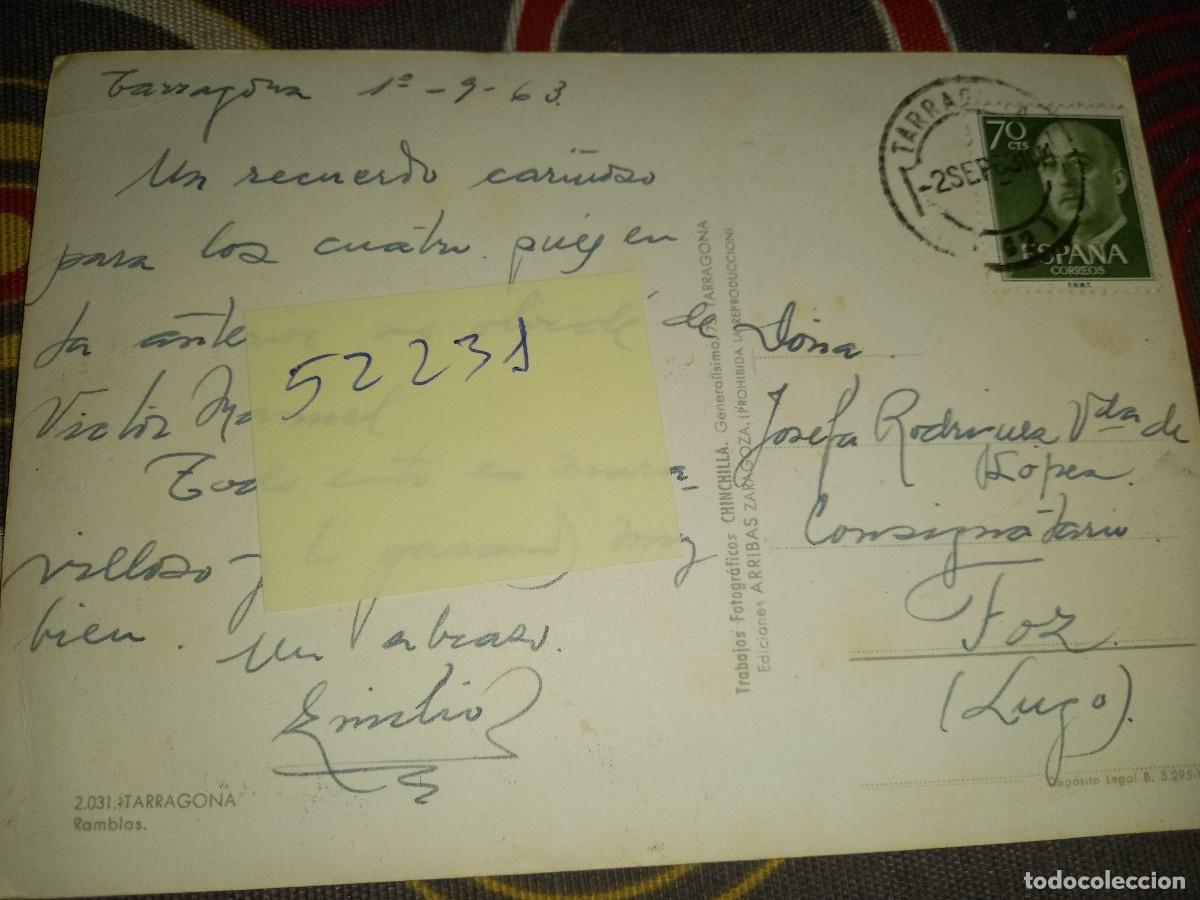 Tarragona 1º-9-63.
Un recuerdo cariñoso
para los cuatro pues en
la anterior me olvidé de
Victor Manuel
Todo esto es mara-
villoso y lo pasando muy
bien. Un abrazo.
Emilio
52231
2.031.-TARRAGONA
Ramblas.
Trabajos Fotográficos CHINCHILLA. Generalísimo, TARRAGONA
Ediciones ARRIBAS ZARAGOZA. (PROHIBIDA LA REPRODUCCION)
TARRAG
-2SEP63
70
CTS
ESPAÑA
CORREOS
F.N.M.T.
Doña
Josefa Rodriguez Vda de
López
Consignatario
Foz
(Lugo).
Depósito Legal B. 3.295-
todocoleccion